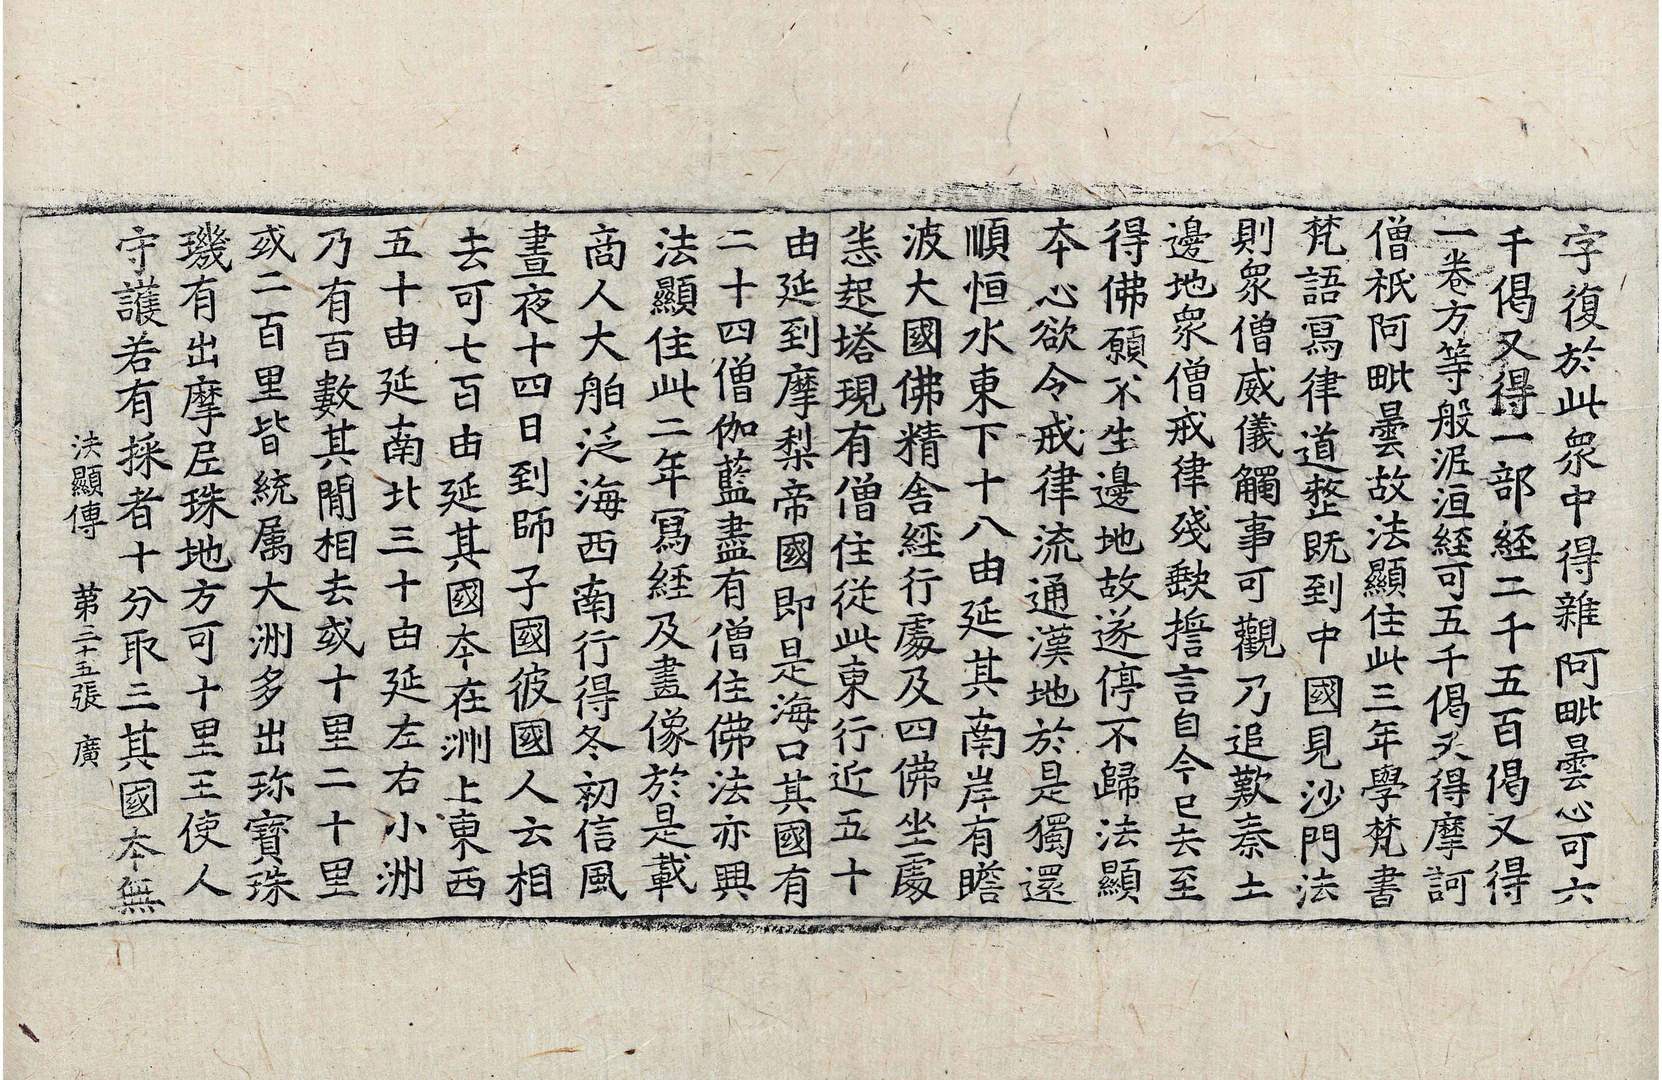 字復於此衆中得雜阿毗曇心可六
千偈又得一部經二千五百偈又得
一卷方等般泥洹經可五千偈又得摩訶
僧祇阿毗曇故法顯住此三年學梵書
梵語寫律道整既到中國見沙門法
則衆僧威儀觸事可觀乃追歎秦土
邊地衆僧戒律殘缺誓言自今已去至
得佛願不生邊地故遂停不歸法顯
本心欲令戒律流通漢地於是獨還
順恒水東下十八由延其南岸有瞻
波大國佛精舍經行處及四佛坐處
悉起塔現有僧住從此東行近五十
由延到摩梨帝國即是海口其國有
二十四僧伽藍盡有僧住佛法亦興
法顯住此二年寫經及畫像於是載
商人大舶泛海西南行得冬初信風
晝夜十四日到師子國彼國人云相
去可七百由延其國本在洲上東西
五十由延南北三十由延左右小洲
乃有百數其閒相去或十里二十里
或二百里皆統属大洲多出珎寶珠
璣有出摩尼珠地方可十里王使人
守護若有採者十分取三其國本無
法顯傳 第二十五張 廣